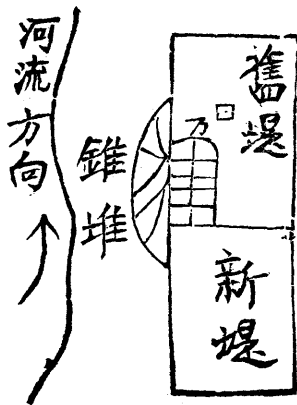 河流方向
錐堆
舊堤
新堤